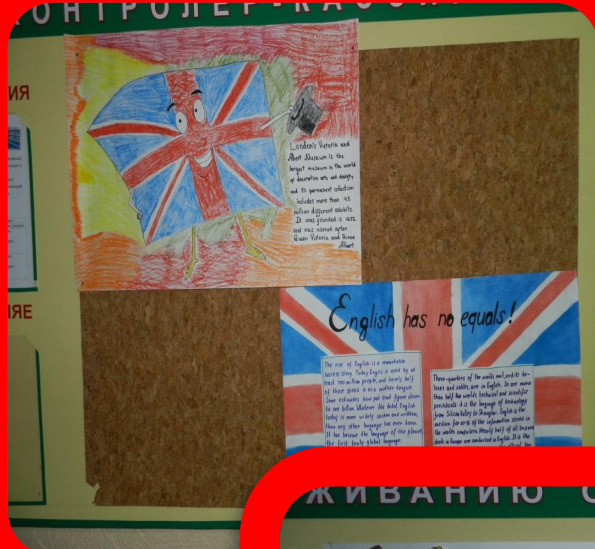 КОНТРОЛЕР-КАССИ
ИЯ
London's Victoria and
Albert Museum is the
largest museum in the world
of decorative arts and design,
and its permanent collection
includes more than 4,5
million different exhibits.
It was founded in 1852
and was named after
Queen Victoria and Prince
Albert
ИЕ
English has no equals!
The rise of English is a remarkable
success story. Today English is used by at
least 700 million people, and barely half
of those speak it as a mother tongue.
Some estimates have put that figure closer
to one billion. Whatever the total, English
today is more widely spoken and written,
than any other language has ever been.
It has become the language of the planet,
the first truly global language.
Three-quarters of the world's mail, and its te-
lexes and cables, are in English. So are more
than half the world's technical and scientific
periodicals: it is the language of technology
from Silicon Valley to Shanghai. English is the
medium for 80% of the information stored in
the world's computers. Nearly half of all business
deals in Europe are conducted in English. It is the
ЖИВАНИЮ